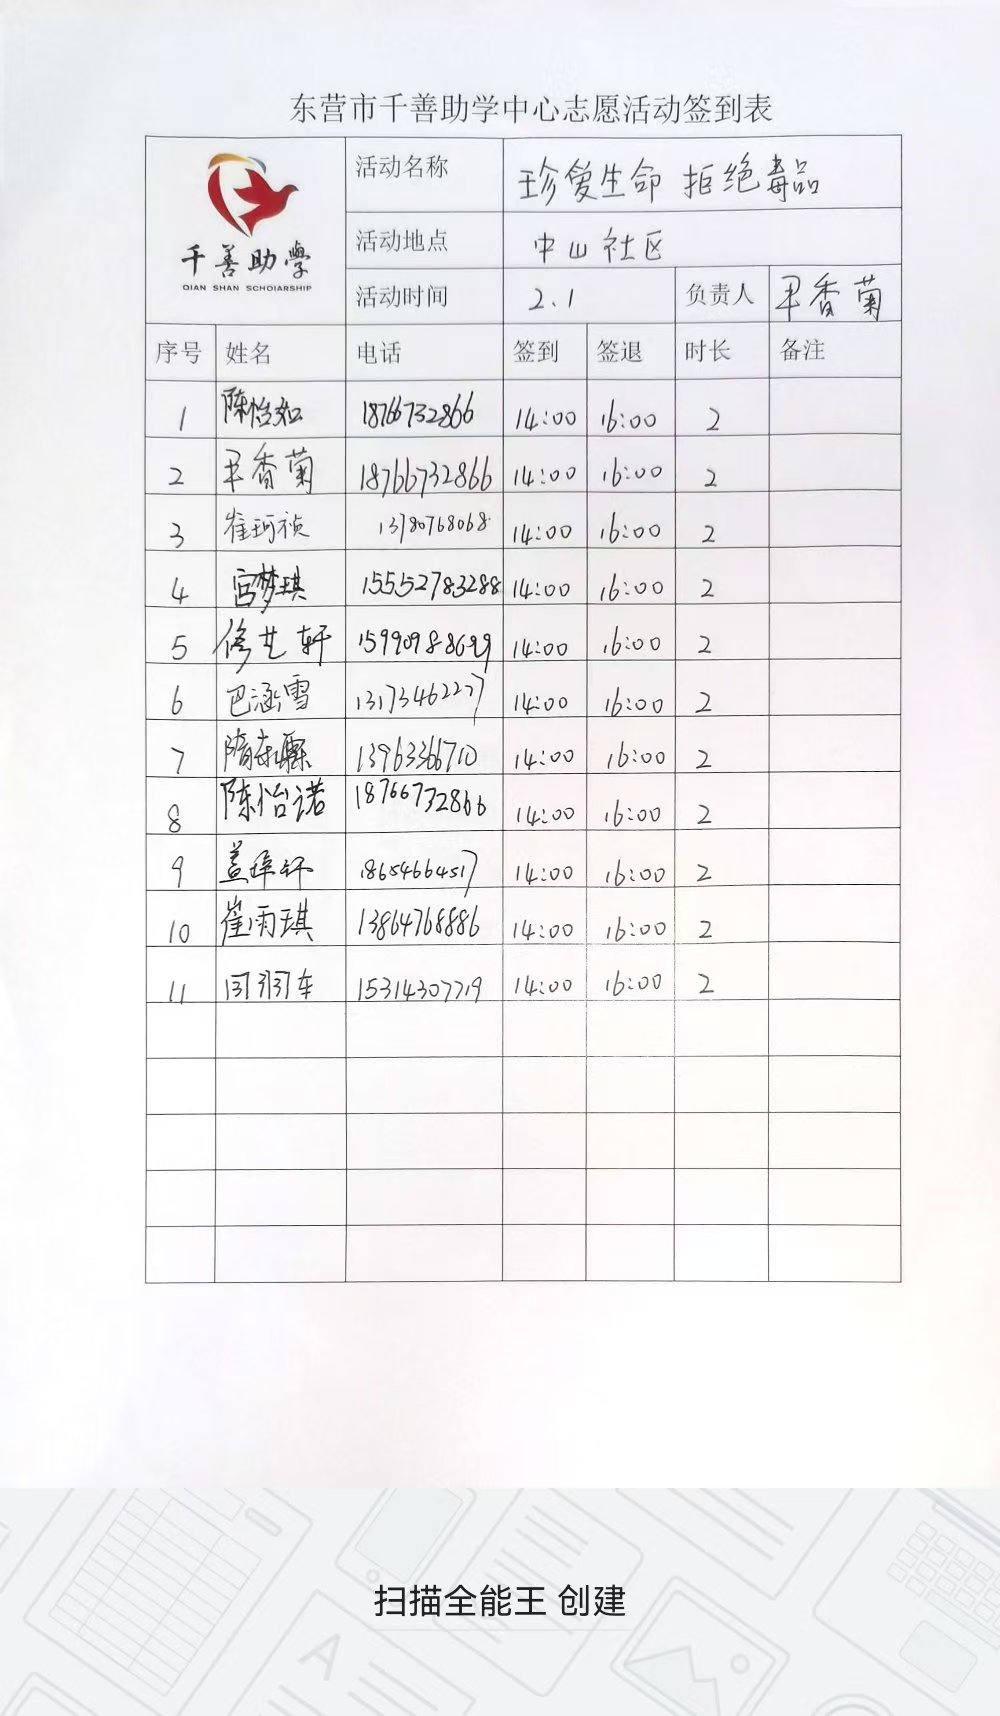 东营市千善助学中心志愿活动签到表
千善助學
QIAN SHAN SCHOIARSHIP
活动名称 珍爱生命 拒绝毒品
活动地点 中山社区
活动时间 2.1 负责人 尹香菊
序号 姓名 电话 签到 签退 时长 备注
1 陈怡如 18766732866 14:00 16:00 2
2 尹香菊 18766732866 14:00 16:00 2
3 崔珂祯 13780768068 14:00 16:00 2
4 宫梦琪 15552783288 14:00 16:00 2
5 修艺轩 15990988699 14:00 16:00 2
6 巴涵雪 13173462277 14:00 16:00 2
7 13963366710 14:00 16:00 2
8 陈怡诺 18766732866 14:00 16:00 2
9 18654664517 14:00 16:00 2
10 崔雨琪 13864768886 14:00 16:00 2
11 15314307719 14:00 16:00 2
扫描全能王 创建